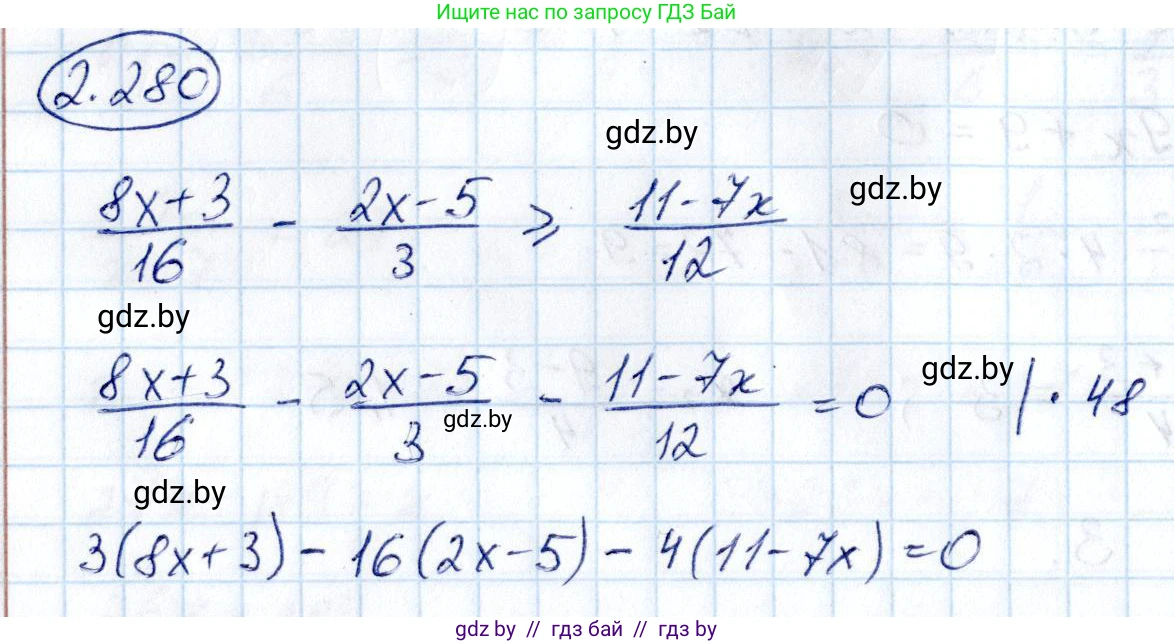 Ищите нас по запросу ГДЗ Бай
2.280
gdz.by
(8x+3)/16 - (2x-5)/3 ≥ (11-7x)/12 gdz.by
gdz.by
(8x+3)/16 - (2x-5)/3 - (11-7x)/12 = 0 | · 48
gdz.by
gdz.by
gdz.by
3(8x+3) - 16(2x-5) - 4(11-7x) = 0
gdz.by // гдз бай // гдз by